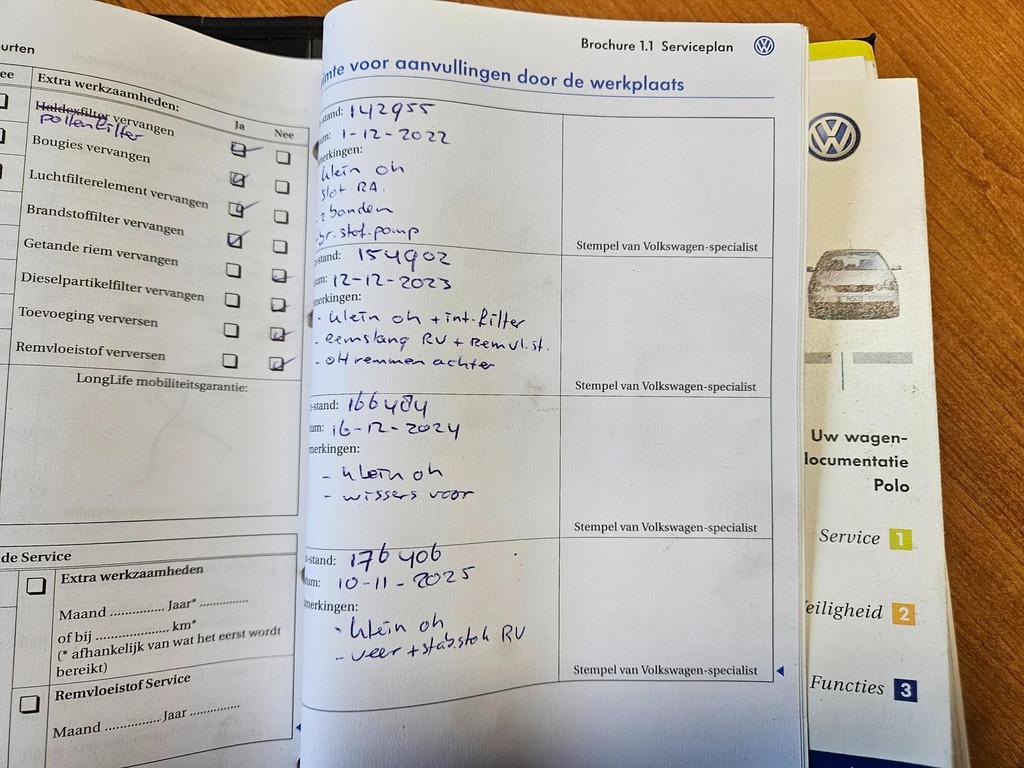 urten
ee
Extra werkzaamheden:
Ja
Nee
Haldexfilter vervangen
pollenfilter
Bougies vervangen
Luchtfilterelement vervangen
Brandstoffilter vervangen
Getande riem vervangen
Dieselpartikelfilter vervangen
Toevoeging verversen
Remvloeistof verversen
LongLife mobiliteitsgarantie:
de Service
Extra werkzaamheden
Maand .............. Jaar* ..............
of bij .................... km*
(* afhankelijk van wat het eerst wordt
bereikt)
Remvloeistof Service
Maand .............. Jaar ..............
Brochure 1.1 Serviceplan
imte voor aanvullingen door de werkplaats
-stand: 142955
um: 1-12-2022
erkingen:
klein oh
slot RA.
2 banden
br.stof.pomp
Stempel van Volkswagen-specialist
-stand: 154902
um: 12-12-2023
merkingen:
- klein oh + int.filter
- remslang RV + Remvl.st.
- oH remmen achter
Stempel van Volkswagen-specialist
-stand: 166484
um: 16-12-2024
merkingen:
- klein oh
- wissers voor
Stempel van Volkswagen-specialist
-stand: 176406
um: 10-11-2025
merkingen:
- klein oh
- veer + stab.stok RV
Stempel van Volkswagen-specialist
Uw wagen-
documentatie
Polo
Service 1
eiligheid 2
Functies 3